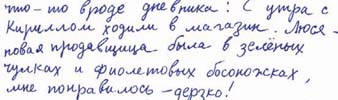 что-то вроде дневника: С утра с
Кириллом ходили в магазин. Люся -
новая продавщица была в зелёных
чулках и фиолетовых босоножках,
мне понравилось - дерзко!